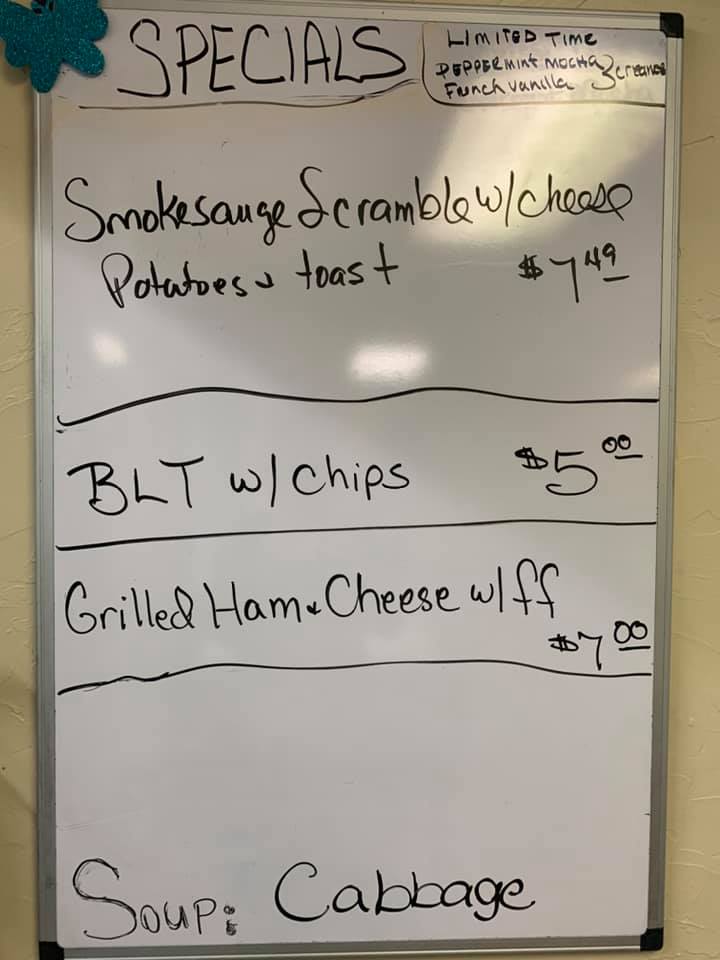 SPECIALS
LIMITED TIME
PEPPERMINT MOCHA
French vanilla } creamers
Smokesauge Scramble w/ cheese
Potatoes & toast $7.49
BLT w/ chips $5.00
Grilled Ham & Cheese w/ ff
$7.00
Soup: Cabbage